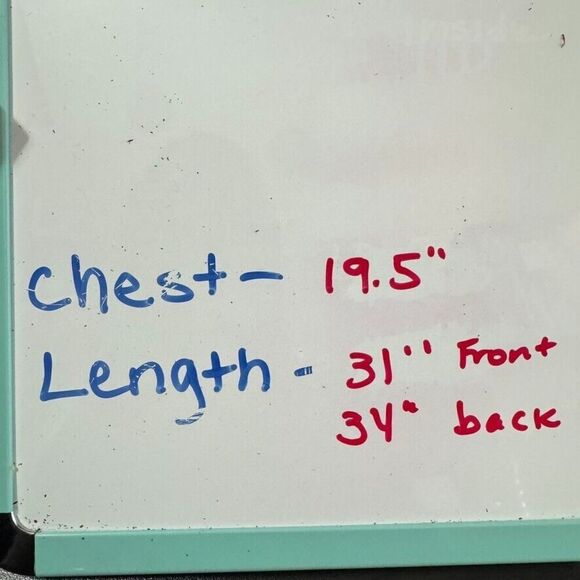 Chest- 19.5"
Length- 31" Front
34" back